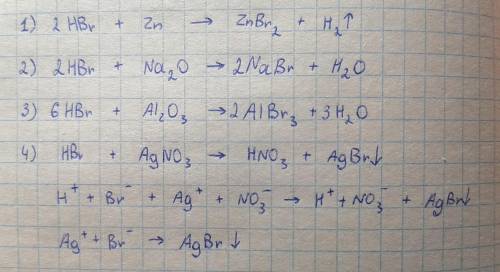 1) 2 HBr + Zn → ZnBr₂ + H₂↑
2) 2HBr + Na₂O → 2NaBr + H₂O
3) 6HBr + Al₂O₃ → 2AlBr₃ + 3H₂O
4) HBr + AgNO₃ → HNO₃ + AgBr↓
H⁺ + Br⁻ + Ag⁺ + NO₃⁻ → H⁺ + NO₃⁻ + AgBr↓
Ag⁺ + Br⁻ → AgBr↓